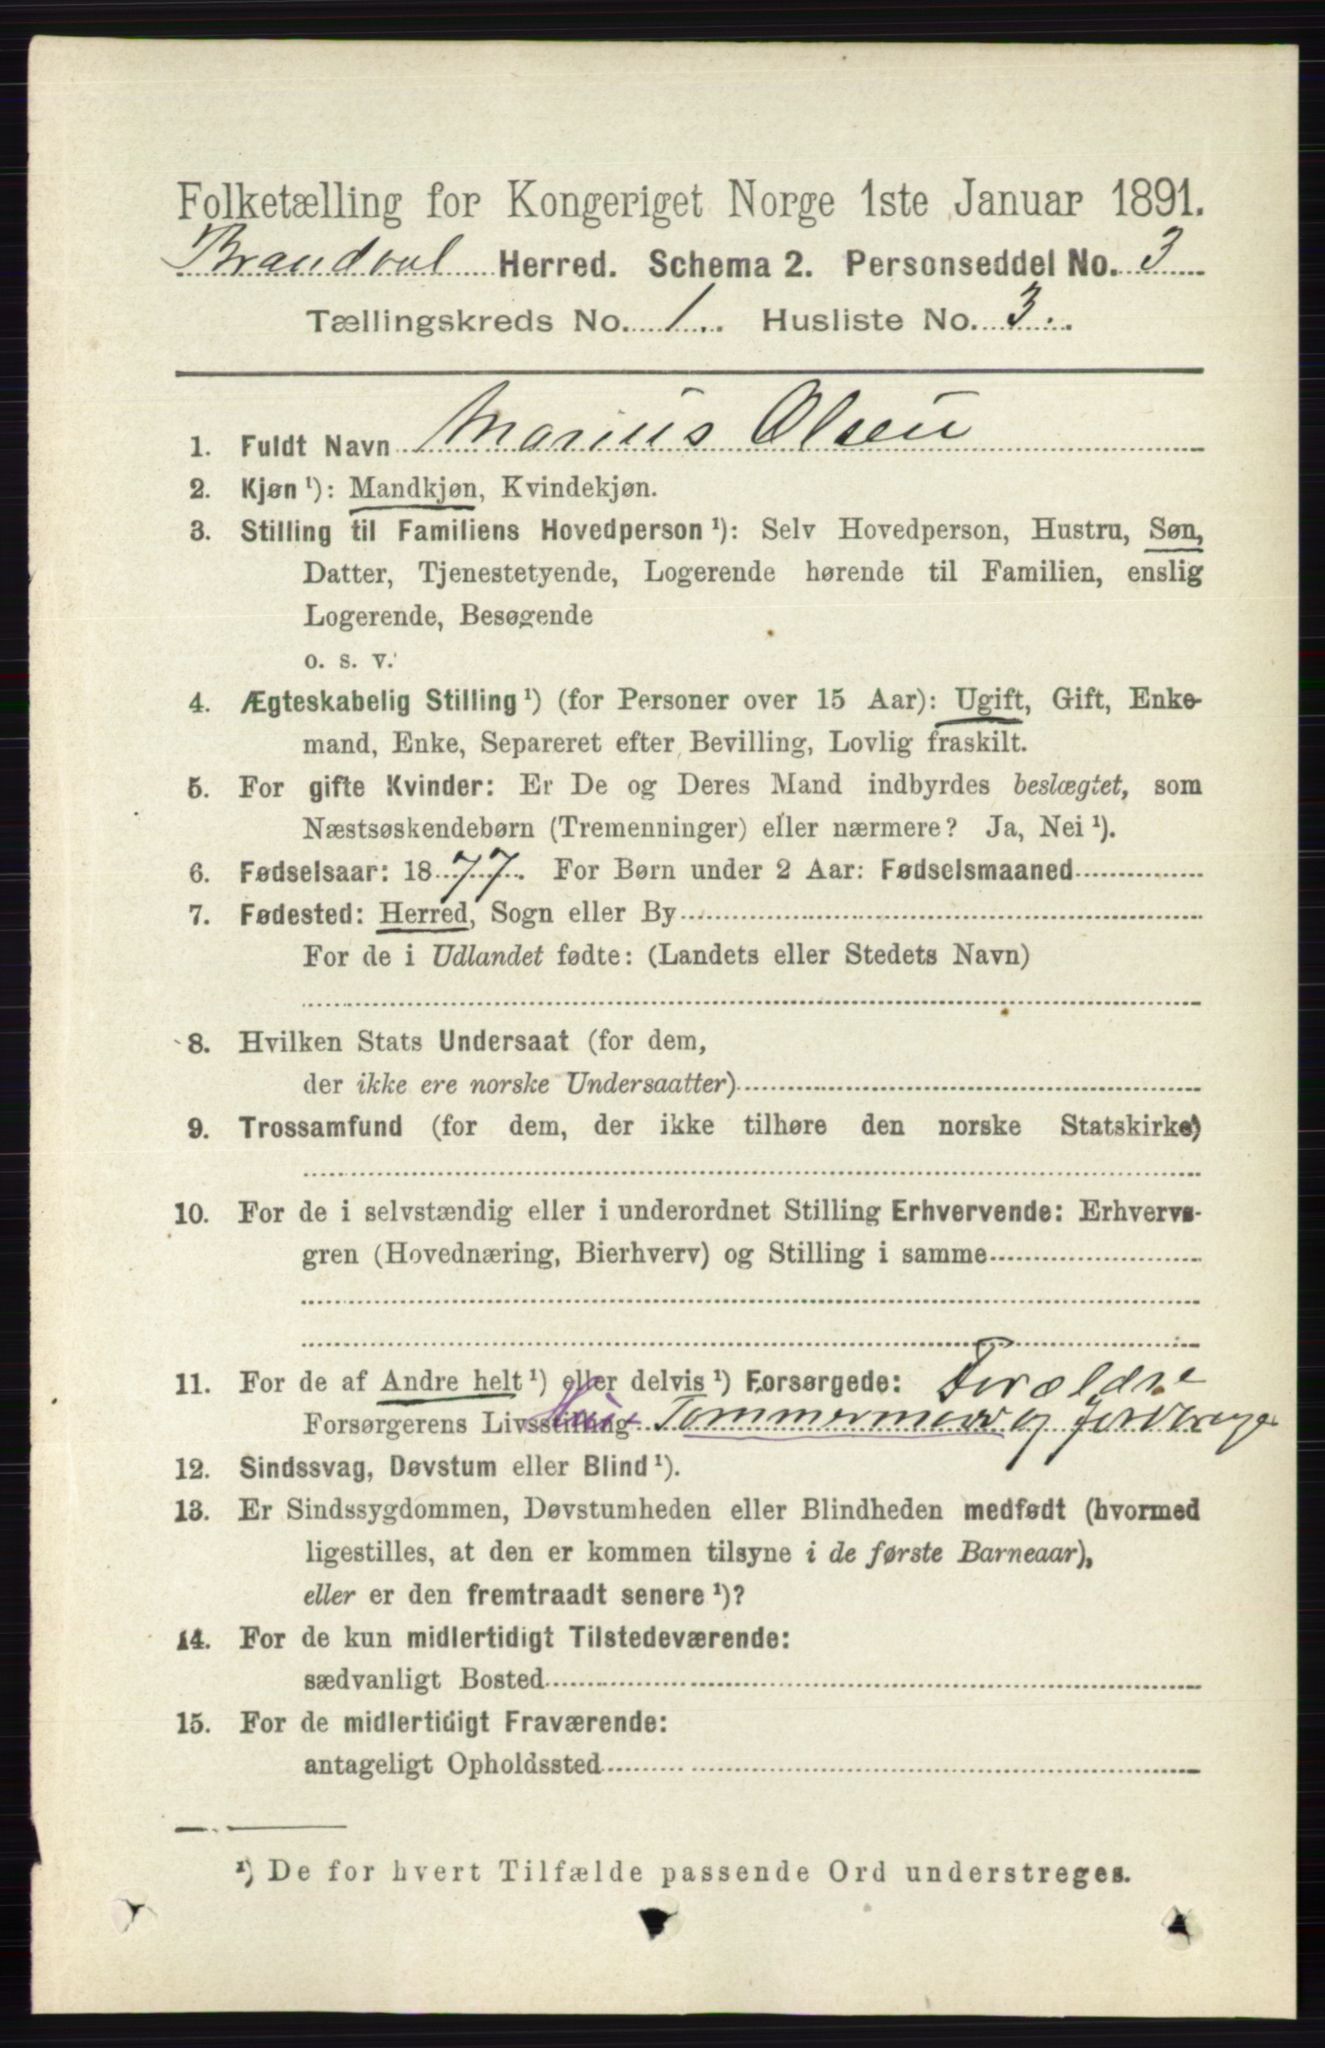 Folketælling for Kongeriget Norge 1ste Januar 1891.
Brandval Herred. Schema 2. Personseddel No. 3
Tællingskreds No. 1. Husliste No. 3.
1. Fuldt Navn Marius Olsen
2. Kjøn ¹): Mandkjøn, Kvindekjøn.
3. Stilling til Familiens Hovedperson ¹): Selv Hovedperson, Hustru, Søn,
Datter, Tjenestetyende, Logerende hørende til Familien, enslig
Logerende, Besøgende
o. s. v.
4. Ægteskabelig Stilling ¹) (for Personer over 15 Aar): Ugift, Gift, Enke-
mand, Enke, Separeret efter Bevilling, Lovlig fraskilt.
5. For gifte Kvinder: Er De og Deres Mand indbyrdes beslægtet, som
Næstsøskendebørn (Tremenninger) eller nærmere? Ja, Nei ¹).
6. Fødselsaar: 1877. For Børn under 2 Aar: Fødselsmaaned
7. Fødested: Herred, Sogn eller By
For de i Udlandet fødte: (Landets eller Stedets Navn)
8. Hvilken Stats Undersaat (for dem,
der ikke ere norske Undersaatter)
9. Trossamfund (for dem, der ikke tilhøre den norske Statskirke)
10. For de i selvstændig eller i underordnet Stilling Erhvervende: Erhvervs-
gren (Hovednæring, Bierhverv) og Stilling i samme
11. For de af Andre helt ¹) eller delvis ¹) Forsørgede: Forældre
Forsørgerens Livsstilling Tømmermand og
12. Sindssvag, Døvstum eller Blind ¹).
13. Er Sindssygdommen, Døvstumheden eller Blindheden medfødt (hvormed
ligestilles, at den er kommen tilsyne i de første Barneaar),
eller er den fremtraadt senere ¹)?
14. For de kun midlertidigt Tilstedeværende:
sædvanligt Bosted
15. For de midlertidigt Fraværende:
antageligt Opholdssted
¹) De for hvert Tilfælde passende Ord understreges.